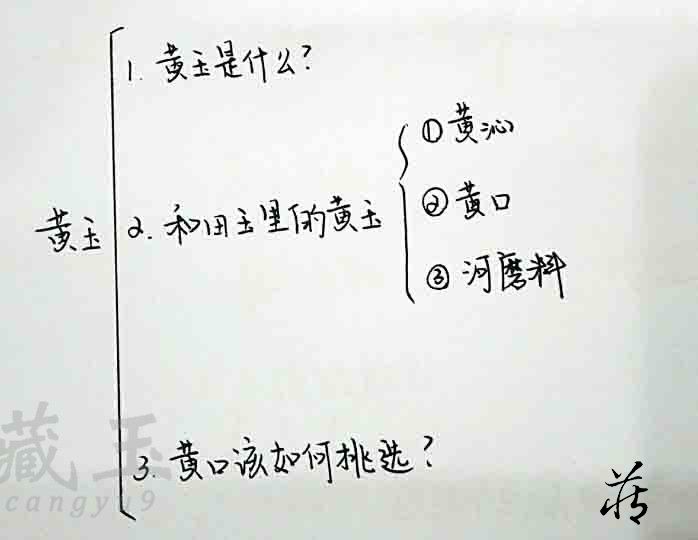 1. 黄玉是什么?
① 黄沁
黄玉
2. 和田玉里的黄玉
② 黄口
③ 河磨料
3. 黄口该如何挑选?
藏玉
cangyu9